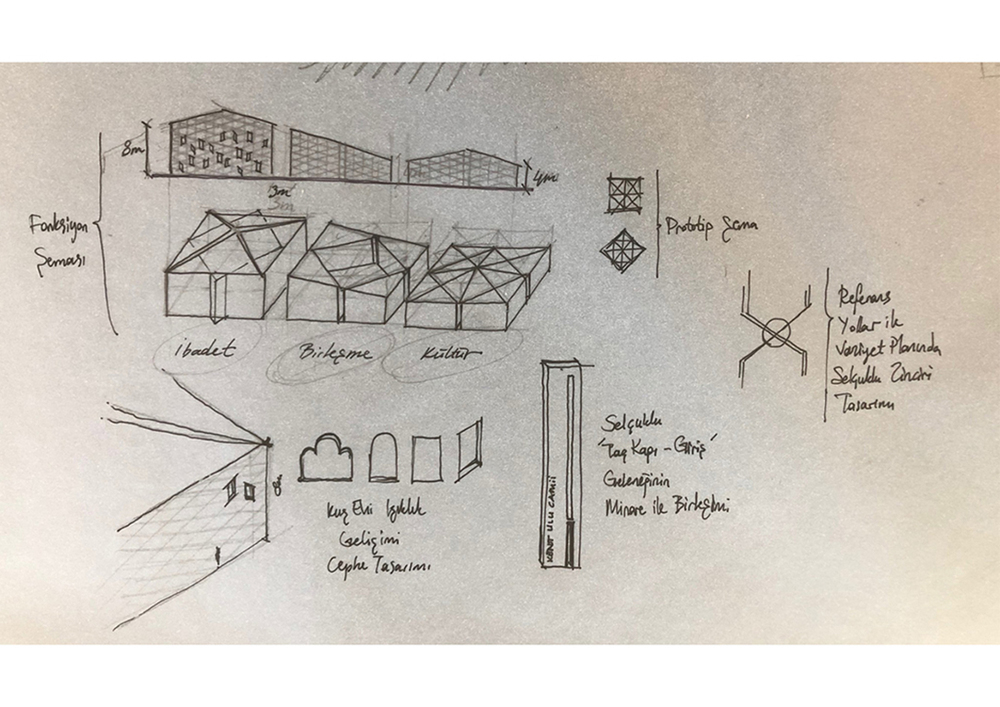 8m
3m
4m
Fonksiyon
Şeması
İbadet
Birleşme
Kültür
Prototip Şema
Referans
Yollar ile
Vaziyet Planında
Selçuklu Zinciri
Tasarımı
8m
Kuş Evi Işıklık
Gelişimi
Cephe Tasarımı
KENT ULU CAMİİ
Selçuklu
"Taç Kapı - Giriş"
Geleneğinin
Minare ile Birleşimi